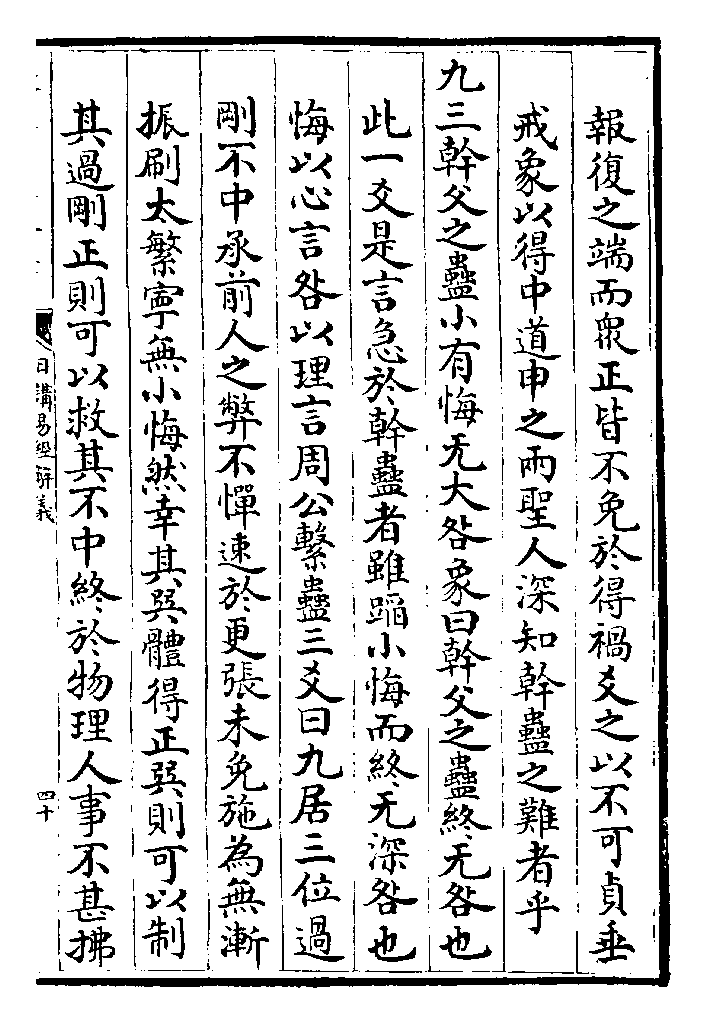 報復之端而衆正皆不免於得禍爻之以不可貞垂
戒象以得中道申之兩聖人深知幹蠱之難者乎
九三幹父之蠱小有悔无大咎象曰幹父之蠱終无咎也
此一爻是言急於幹蠱者雖蹈小悔而終无深咎也
悔以心言咎以理言周公繫蠱三爻曰九居三位過
剛不中承前人之弊不憚速於更張未免施為無漸
振刷太繁寧無小悔然幸其巽體得正巽則可以制
其過剛正則可以救其不中終於物理人事不甚拂
日講易經解義
四十